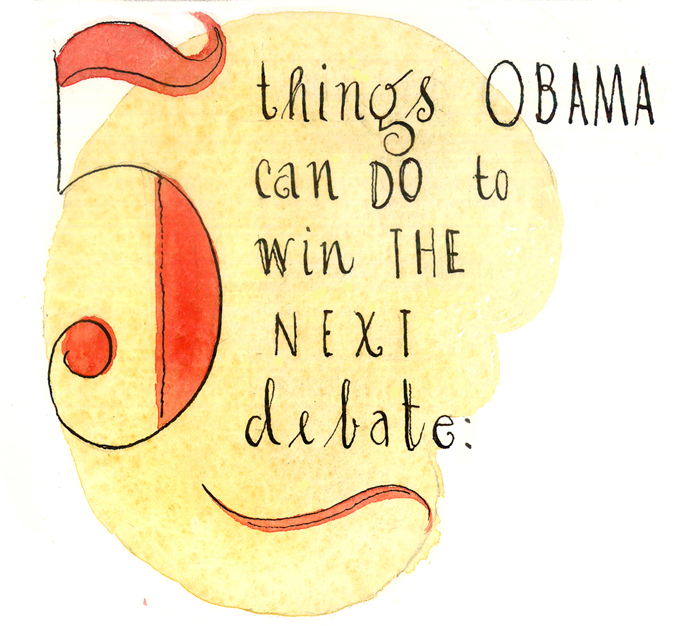 5 things OBAMA
can DO to
win THE
NEXT
debate: